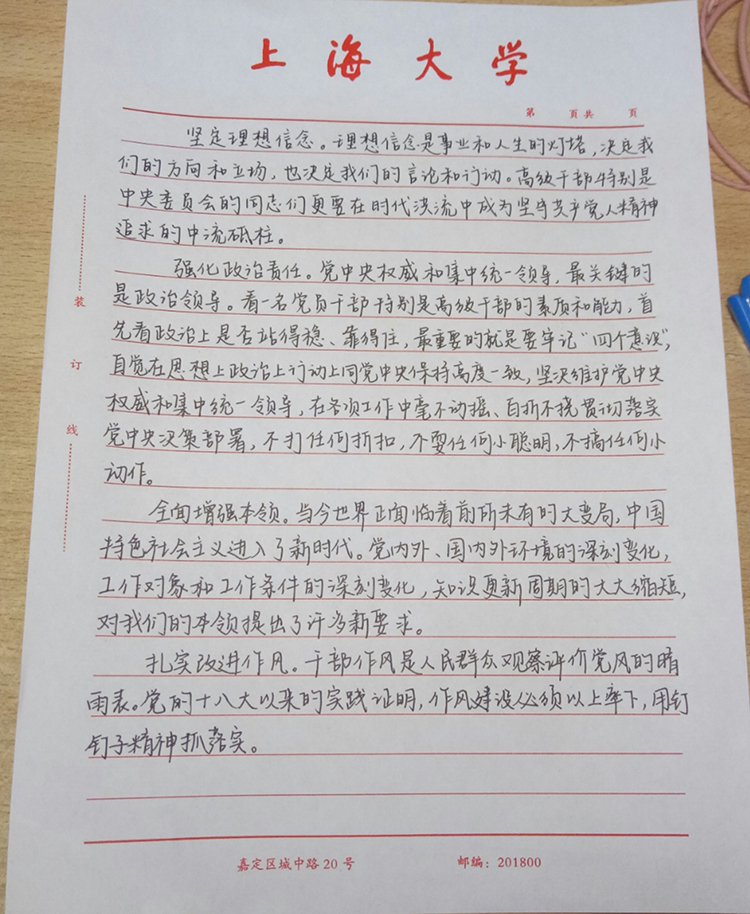 上海大学
第 页共 页
坚定理想信念。理想信念是事业和人生的灯塔,决定我
们的方向和立场,也决定我们的言论和行动。高级干部特别是
中央委员会的同志们更要在时代洪流中成为坚守共产党人精神
追求的中流砥柱。
强化政治责任。党中央权威和集中统一领导,最关键的
是政治领导。看一名党员干部特别是高级干部的素质和能力,首
先看政治上是否站得稳、靠得住,最重要的就是要牢记“四个意识”,
自觉在思想上政治上行动上同党中央保持高度一致,坚决维护党中央
权威和集中统一领导,在各项工作中毫不动摇、百折不挠贯彻落实
党中央决策部署,不打任何折扣,不耍任何小聪明,不搞任何小
动作。
全面增强本领。当今世界正面临着前所未有的大变局,中国
特色社会主义进入了新时代。党内外、国内外环境的深刻变化,
工作对象和工作条件的深刻变化,知识更新周期的大大缩短,
对我们的本领提出了许多新要求。
扎实改进作风。干部作风是人民群众观察评价党风的晴
雨表。党的十八大以来的实践证明,作风建设必须以上率下,用钉
钉子精神抓落实。
装
订
线
嘉定区城中路20号 邮编:201800